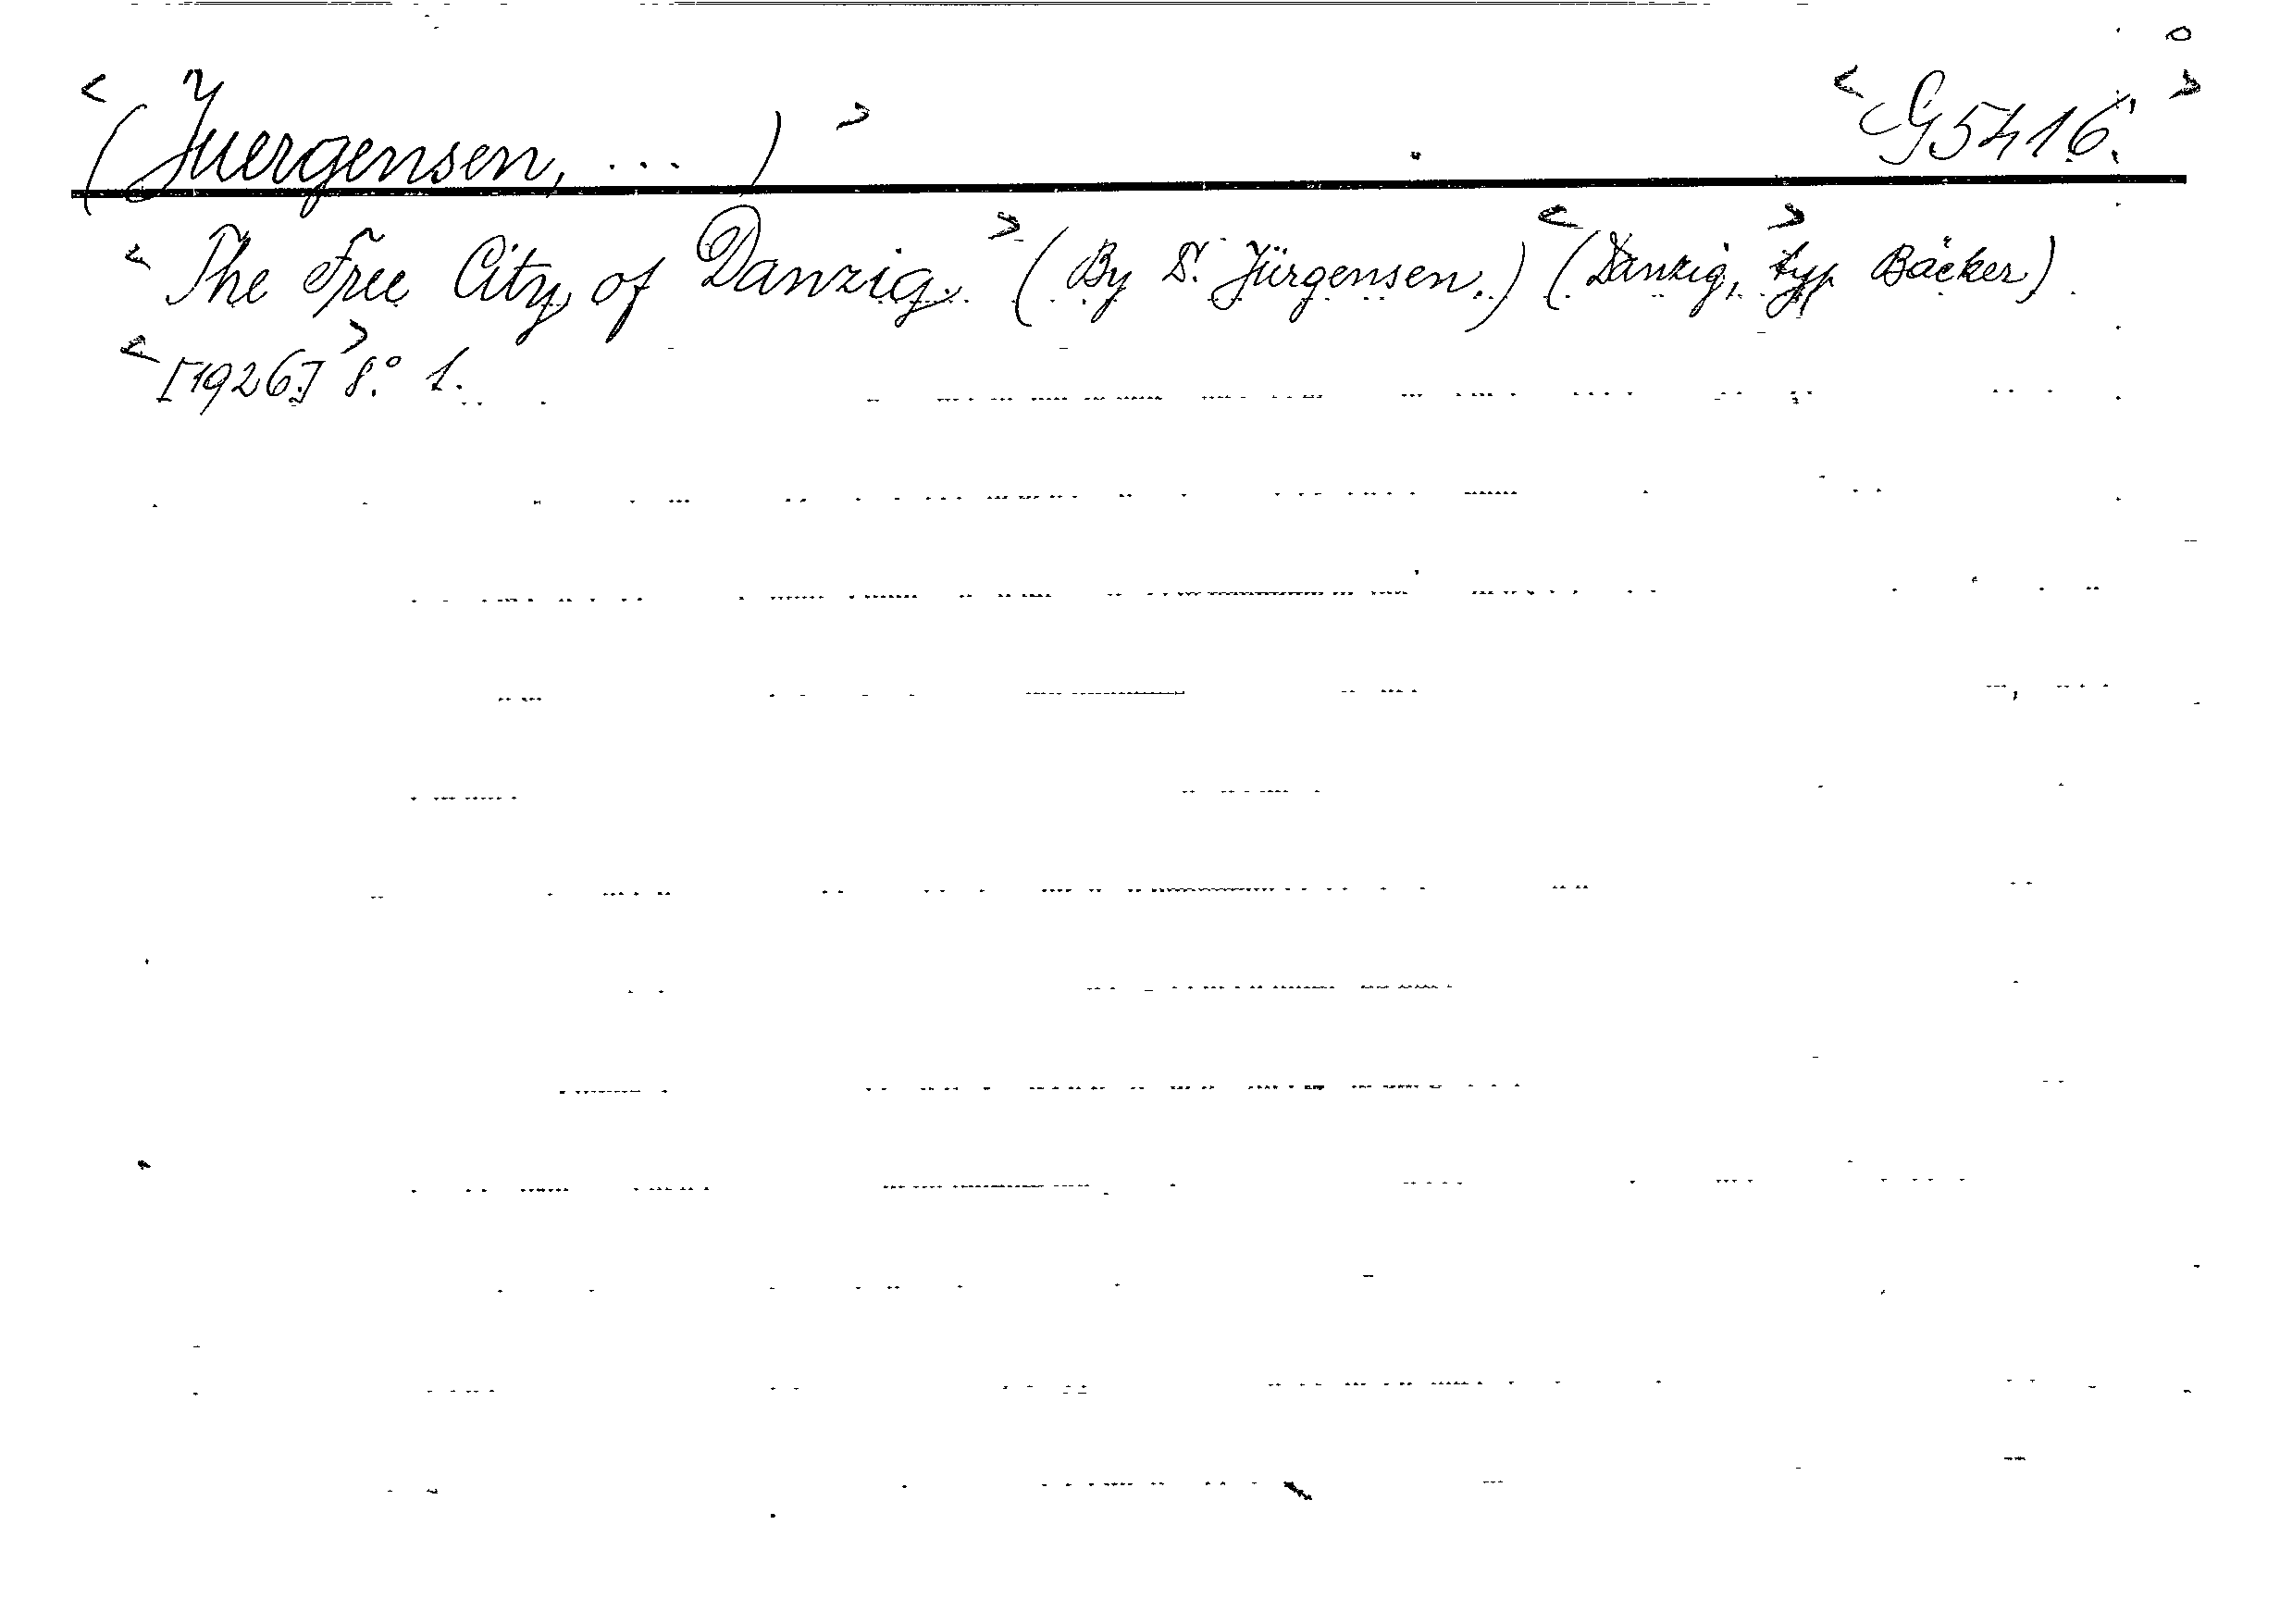 <(Juergensen, ...)> <G 5416.>
<The Free City of Danzig.> (By D. Jürgensen.) <(Danzig,> typ. Bäcker)
<[1926]> 8.° 1.